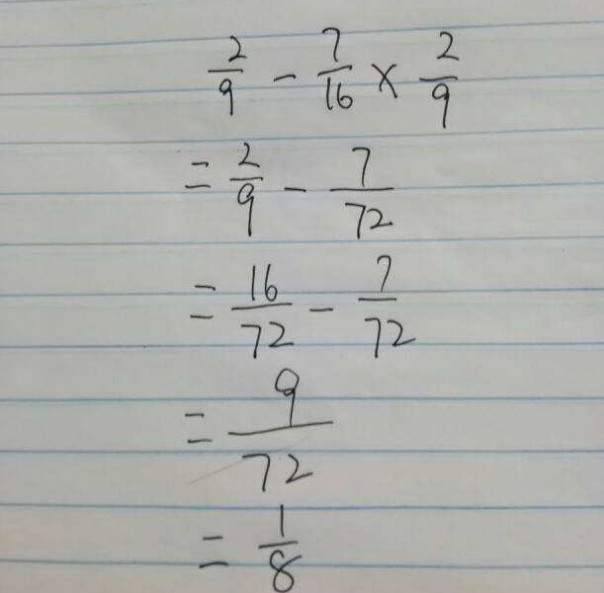 2/9 - 7/16 × 2/9
= 2/9 - 7/72
= 16/72 - 7/72
= 9/72
= 1/8